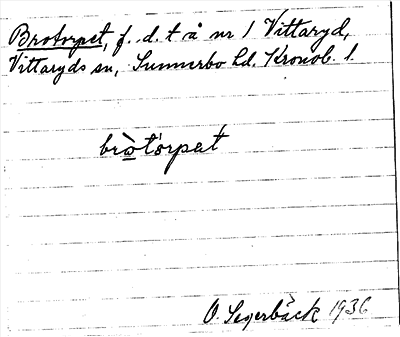 Brotorpet, f. d. t. å nr 1 Vittaryd,
Vittaryds sn, Sunnerbo hd. Kronob. l.
bròtòrpat
O. Segerbäck 1936